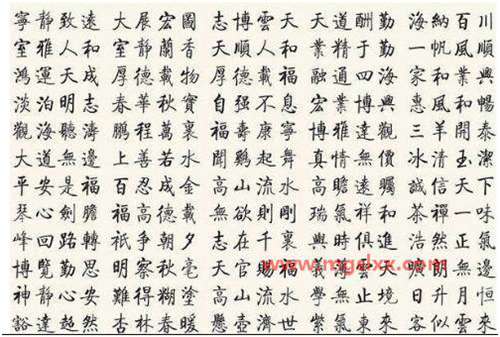 寧靜致遠 大展宏圖 志博雲天 天道酬勤 海納百川
室雅人和 室靜蘭香 大順人和 業精于勤 一帆風順
鴻運天成 厚德載物 厚德載福 融通四海 家和業興
淡泊明志 春華秋實 自强不息 宏業博興 惠風和暢
觀海聽濤 鵬程萬裏 福壽康寧 博雅達觀 三羊開泰
大道無邊 上善若水 聞鷄起舞 真情無價 冰清玉潔
平安是福 百忍成金 高山流水 高瞻遠矚 誠信天下
琴心劍膽 福高德載 無欲則剛 瑞氣祥和 茶禪一味
峰回路轉 祇爭朝夕 志在千裏 與時俱進 浩然正氣
博覽勤思 明察秋毫 天官賜福 無邊
神靜心安 難得糊塗 高山流水 學無止境 日升月恒
豁達超然 杏林春暖 懸壺濟世 紫氣東來 客似雲來